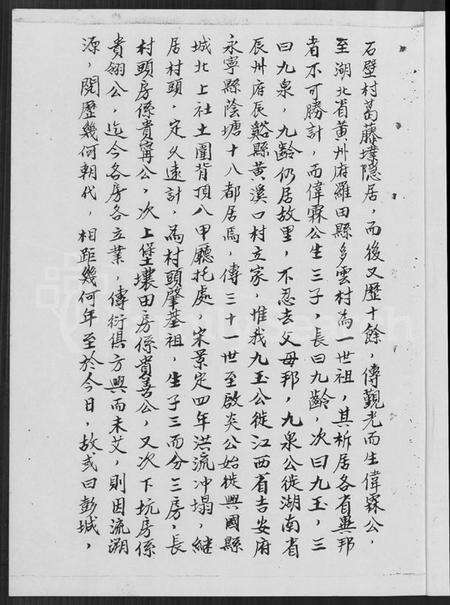 石壁村葛藤墣隱居，而後又歷十餘，傳觀光而生偉霖公，
至湖北省黄州府羅田縣多雲村為一世祖，其析居各省異邦
者不可勝計，而偉霖公生三子，長曰九齡，次曰九玉，三
曰九泉，九齡仍居故里，不忍去父母邦，九泉公徙湖南省
辰州府辰谿縣黄溪口村立家，惟我九玉公徙江西省吉安府
永寧縣蔭塘十八都居焉，傳三十一世至啟炎公始徙興國縣
城北上社土圍背頂八甲廳扥處，宋景定四年洪流冲塌，継
居村頭，定久遠計，為村頭肇基祖，生子三而分三房，長
村頭房係貴寧公，次上堡壩田房係貴善公，又次下坑房係
貴翎公，迄今各房各立業，傳衍俱方興而未艾，則因流溯
源，閱歷幾何朝代，相距幾何年至於今日，故或曰彭城，